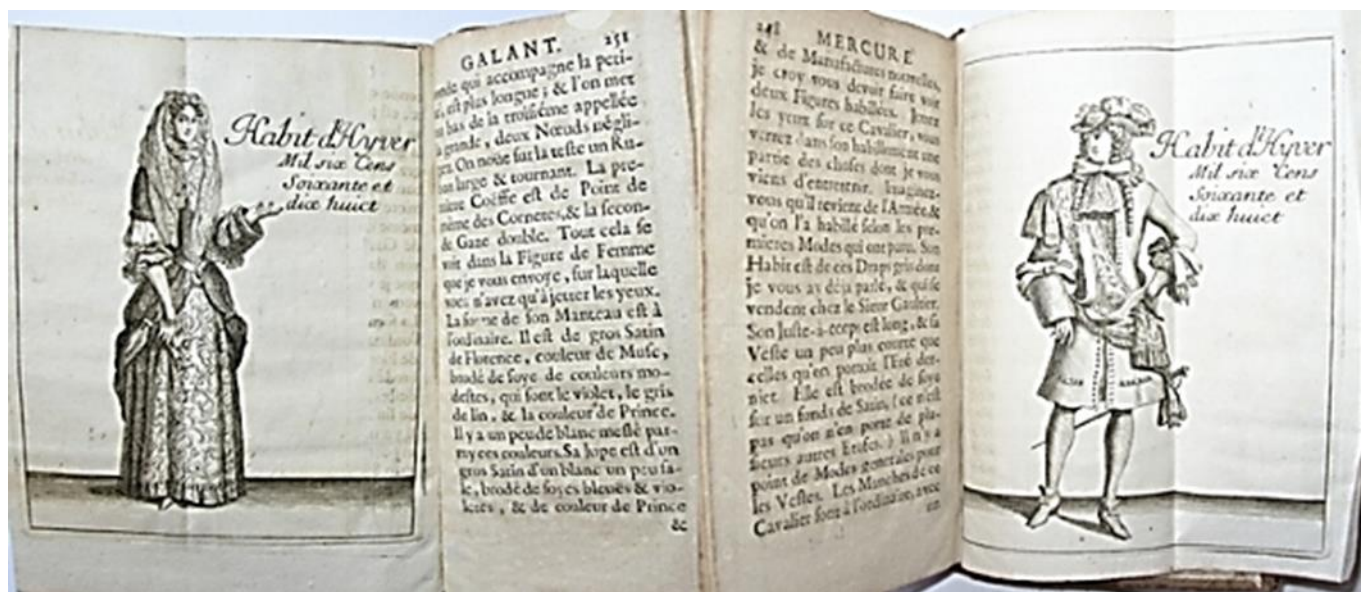 Habit d'Hyver
Mil six Cens
Soixante et
dix huict
GALANT. 251
qui accompagne la peti-
est plus longue ; & l'on met
bas de la troisiéme appellée
grande, deux Nœuds négli-
On nouë sur la teste un Ru-
large & tournant. La pre-
Coëffe est de Point de
mesme des Cornetes, & la secon-
de Gaze double. Tout cela se
voit dans la Figure de Femme
que je vous envoye, sur laquelle
vous n'avez qu'à jetter les yeux.
La forme de son Manteau est à
l'ordinaire. Il est de gros Satin
de Florence, couleur de Musc,
brodé de soye de couleurs mo-
destes, qui sont le violet, le gris
de lin, & la couleur de Prince.
Il y a un peu de blanc meslé par-
my ces couleurs. Sa Jupe est d'un
gros Satin d'un blanc un peu sa-
le, brodé de soyes bleuës & vio-
letes, & de couleur de Prince
&
248 MERCURE
& de Manufactures nouvelles,
je croy vous devoir faire voir
deux Figures habillées. Jettez
les yeux sur ce Cavalier, vous
verrez dans son habillement une
partie des choses dont je vous
viens d'entretenir. Imaginez-
vous qu'il revient de l'Armée, &
qu'on l'a habillé selon les pre-
mieres Modes qui ont paru. Son
Habit est de ces Draps gris dont
je vous ay déja parlé, & qui se
vendent chez le Sieur Gaultier.
Son Juste-à-corps est long, & sa
Veste un peu plus courte que
celles qu'on portoit l'Esté der-
nier. Elle est brodée de soye
sur un fonds de Satin, (ce n'est
pas qu'on n'en porte de plu-
sieurs autres Etofes.) Il n'y a
point de Modes generales pour
les Vestes. Les Manches de ce
Cavalier sont à l'ordinaire, avec
un
Habit d'Hyver
Mil six Cens
Soixante et
dix huict